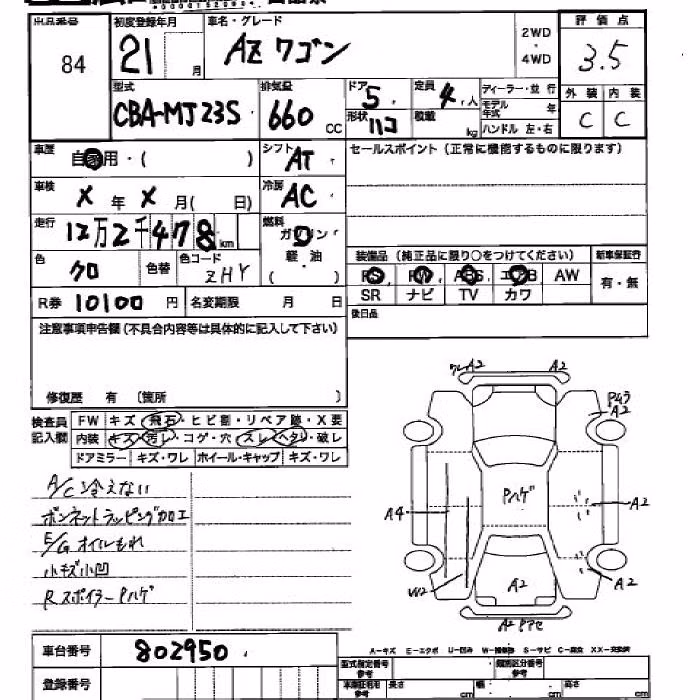 出品番号 初度登録年月 車名・グレード 2WD・4WD 評価点
84 21 月 AZワゴン 3.5
型式 排気量 ドア 5 定員 4人 ディーラー・並行 外装 内装
CBA-MJ23S 660 CC 形状 ハコ 積載 kg モデル年式 年 C C
ハンドル 左・右
車歴 自家用・( ) シフト AT セールスポイント(正常に機能するものに限ります)
車検 X年X月( 日) 冷房 AC
走行 12万2千478km 燃料 ガソリン
色 クロ 色替 色コード ZHY 軽・油 ( )
装備品(純正品に限り○をつけてください) 新車保証書
PS PW ABS エアB AW 有・無
R券 10100円 名変期限 月 日 SR ナビ TV カワ
後日品
注意事項申告欄(不具合内容等は具体的に記入して下さい)
修復歴 有 〔箇所 〕
検査員記入欄 FW キズ・飛石・ヒビ割・リペア跡・X要
内装 キズ・汚レ・コゲ・穴・スレ・ヘタリ・破レ
ドアミラー キズ・ワレ ホイール・キャップ キズ・ワレ
A/C冷えない
ボンネットラッピング加工
E/Gオイルもれ
小キズ小凹
RスポイラーPハゲ
A2 A2
A2
A4 Pハゲ A2
W2 A2 A2
A2
車台番号 802950
A-キズ E-エクボ U-凹み W-補修跡 S-サビ C-腐食 XX-交換済
登録番号
型式指定番号 参考 類別区分番号 参考
長さ cm 幅 cm 高さ cm